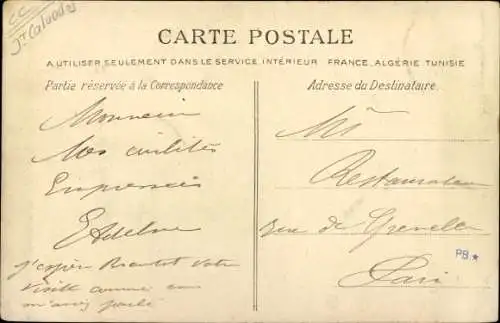 CC
CARTE POSTALE
A UTILISER SEULEMENT DANS LE SERVICE INTÉRIEUR FRANCE, ALGÉRIE TUNISIE
Partie réservée à la Correspondance
Monsieur
Mes civilités
Empressées
J'espère Bientôt Votre
visite comme
m'avez parlé
Adresse du Destinataire.
Mr
Restaurateur
Rue de Grenelle
Paris
PB*